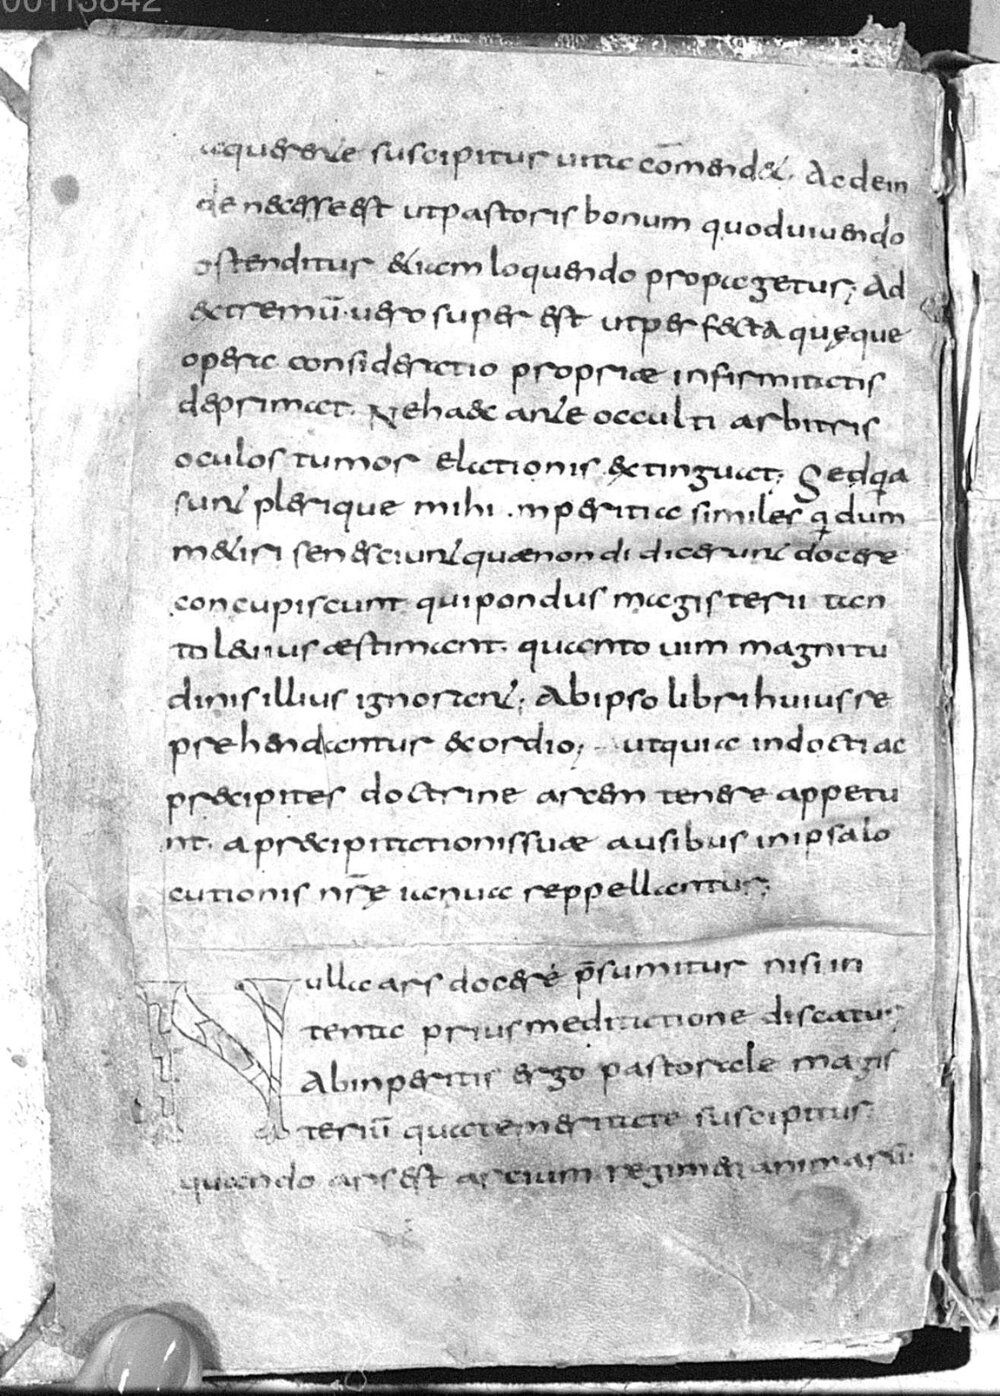 00113842
a querente suscipitur uita cōmendet. Ac dein
de necesse est ut pastoris bonum quod uiuendo
ostenditur etiam loquendo propagetur; Ad
extremū uero super est ut perfecta quęque
opera consideratio propriae infirmitatis
deprimat. Ne haec ante occulti arbitris
oculos tumor elationis extinguat; Sed qa
sunt plerique mihi inperitia similes q dum
metiri se nesciunt quae non didicerunt docere
concupiscunt qui pondus magisterii tan
to leuius aestimant. quanto uim magnitu
dinis illius ignorant; Ab ipso libri huius re
prehendantur exordio; ut quia indocti ac
precipites doctrine arcem tenere appetu
nt. a precipitationis suae ausibus in ipsa lo
cutionis nrę ianua reppellantur;
Nulla ars doceré p̄sumitur nisi in
tenta prius meditatione discatur;
Ab inperitis ergo pastorale magis
teriū qua temeritate suscipitur
quando ars est arcium regimen animarū.